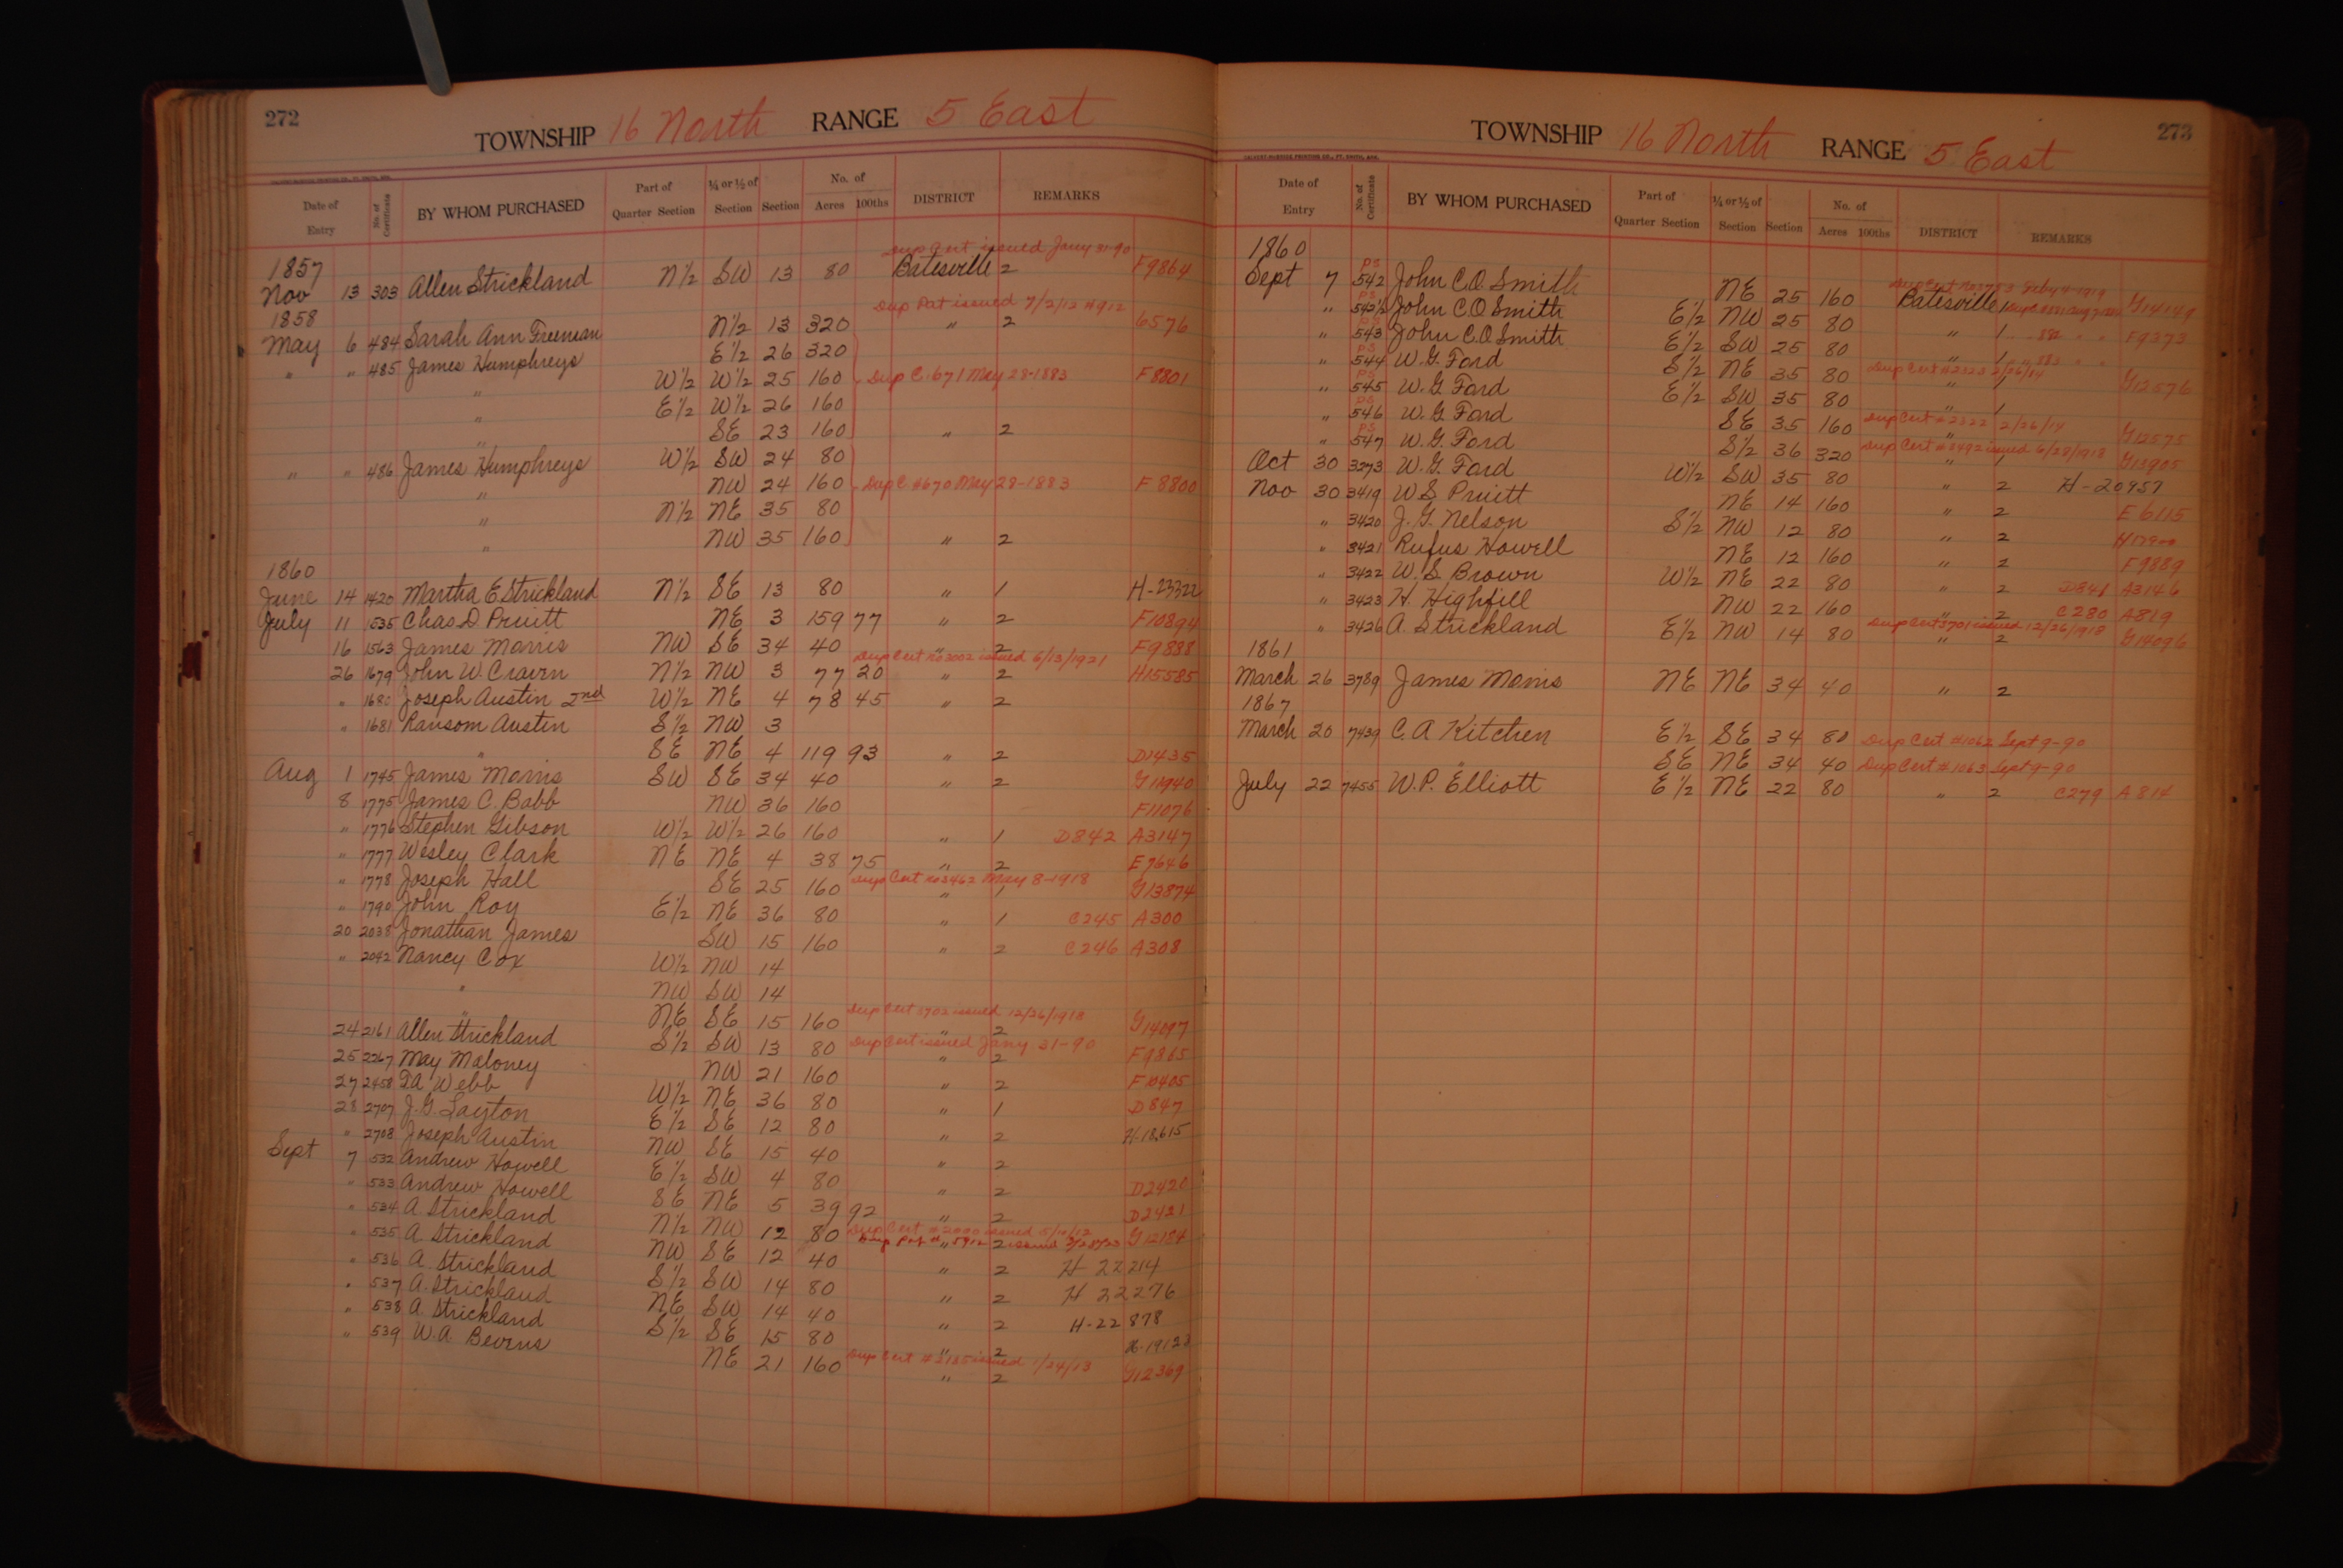 272
TOWNSHIP 16 North RANGE 5 East
Date of Entry No. of Certificate BY WHOM PURCHASED Part of Quarter Section ¼ or ½ of Section Section No. of Acres 100ths DISTRICT REMARKS
Dup Cert issued Jany 31-90
1857
Nov 13 303 Allen Strickland N½ SW 13 80 Batesville 2 F9864
1858 Dup Pat issued 7/2/12 #912
May 6 484 Sarah Ann Freeman N½ 13 320 " 2 6576
" " 485 James Humphreys E½ 26 320
" W½ W½ 25 160 Dup C. 671 May 28-1883 F8801
" E½ W½ 26 160
" SE 23 160 " 2
" " 486 James Humphreys W½ SW 24 80
" NW 24 160 Dup C #670 May 28-1883 F8800
" N½ NE 35 80
" NW 35 160 " 2
1860
June 14 1420 Martha E. Strickland N½ SE 13 80 " 1 H-23322
July 11 1535 Chas. D. Pruitt NE 3 159 77 " 2 F10894
16 1563 James Morris NW SE 34 40 " 2 F9888
Dup Cert no 3002 issued 6/13/1921
26 1679 John W. Craven N½ NW 3 77 20 " 2 H15585
" 1680 Joseph Austin 2nd W½ NE 4 78 45 " 2
" 1681 Ransom Austin S½ NW 3
" SE NE 4 119 93 " 2 D1435
Aug 1 1745 James Morris SW SE 34 40 " 2 G11940
8 1775 James C. Babb NW 36 160 F11076
" 1776 Stephen Gibson W½ W½ 26 160 " 1 D842 A3147
" 1777 Wesley Clark NE NE 4 38 75 " 2 E7646
Dup Cert no 3462 May 8-1918
" 1778 Joseph Hall SE 25 160 " 1 G13874
" 1790 John Roy E½ NE 36 80 " 1 C245 A300
20 2038 Jonathan James SW 15 160 " 2 C246 A308
" 2042 Nancy Cox W½ NW 14
" NW SW 14
Dup Cert 3702 issued 12/26/1918
" NE SE 15 160 " 2 G14097
24 2161 Allen Strickland S½ SW 13 80 Dup Cert issued Jany 31-90 " 2 F9865
25 2267 May Maloney NW 21 160 " 2 F10405
27 2458 T.A. Webb W½ NE 36 80 " 1 D847
28 2707 J.G. Layton E½ SE 12 80 " 2 H-18,615
" 2708 Joseph Austin NW SE 15 40 " 2
Sept 7 532 Andrew Howell E½ SW 4 80 " 2 D2420
" 533 Andrew Howell SE NE 5 39 92 " 2 D2421
Dup Cert #2000 issued 5/10/12
" 534 A. Strickland N½ NW 12 80 Dup Pat # 5912 " 2 issued G12184
" 535 A. Strickland NW SE 12 40 " 2 H 22214
" 536 A. Strickland S½ SW 14 80 " 2 H 22276
" 537 A. Strickland NE SW 14 40 " 2 H-22878
" 538 A. Strickland S½ SE 15 80 " 2
Dup Cert #2185 issued 1/24/13
" 539 W.A. Bevens NE 21 160 " 2 G12369
273
TOWNSHIP 16 North RANGE 5 East
Date of Entry No. of Certificate BY WHOM PURCHASED Part of Quarter Section ¼ or ½ of Section Section No. of Acres 100ths DISTRICT REMARKS
1860
Sept 7 PS 542 John C.O. Smith NE 25 160 Batesville 1 G14149
" PS 542½ John C.O. Smith E½ NW 25 80 " 1 882 " " F9373
" PS 543 John C.O. Smith E½ SW 25 80 " 1 883 " "
Dup Cert #2323 2/26/14
" PS 544 W.G. Ford S½ NE 35 80 " 1 G12576
" PS 545 W.G. Ford E½ SW 35 80 " 1
Dup Cert #2322 2/26/14
" PS 546 W.G. Ford SE 35 160 " G12575
Dup Cert #3492 issued 6/28/1918
" PS 547 W.G. Ford S½ 36 320 " 1 G13905
Oct 30 3273 W.G. Ford W½ SW 35 80 " 2 H-20957
Nov 30 3419 W.S. Pruitt NE 14 160 " 2 E6115
" 3420 J.G. Nelson S½ NW 12 80 " 2
" 3421 Rufus Howell NE 12 160 " 2 F9889
" 3422 W.S. Brown W½ NE 22 80 " 2 D841 A3146
" 3423 H. Highfill NW 22 160 " 2 C280 A819
Dup Cert 3701 issued 12/26/1918
" 3426 A. Strickland E½ NW 14 80 " 2 G14096
1861
March 26 3789 James Morris NE NE 34 40 " 2
1867
March 20 7439 C.A. Kitchen E½ SE 34 80 Dup Cert #1062 Sept 9-90
" SE NE 34 40 Dup Cert #1063 Sept 9-90
July 22 7455 W.P. Elliott E½ NE 22 80 " 2 C279 A814